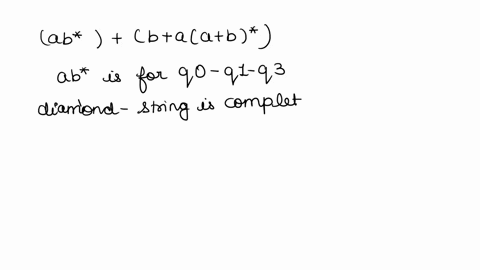 (ab* ) + (b+a(a+b)*)
ab* is for q0-q1-q3
diamond- string is complet